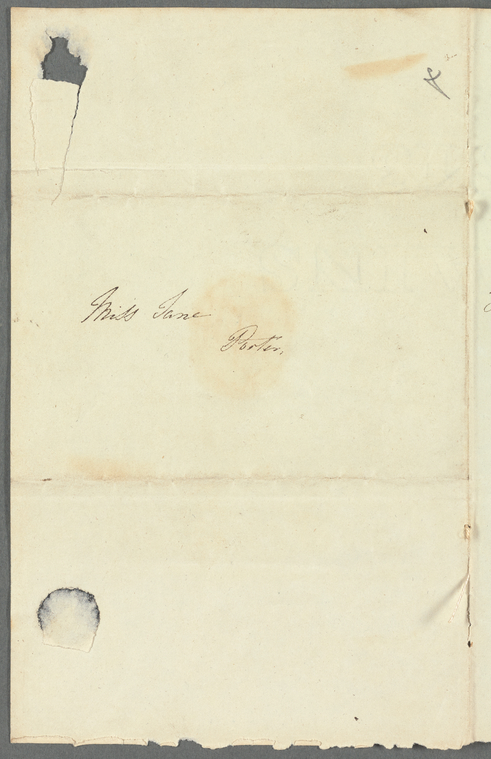 Miss Jane
Porter,